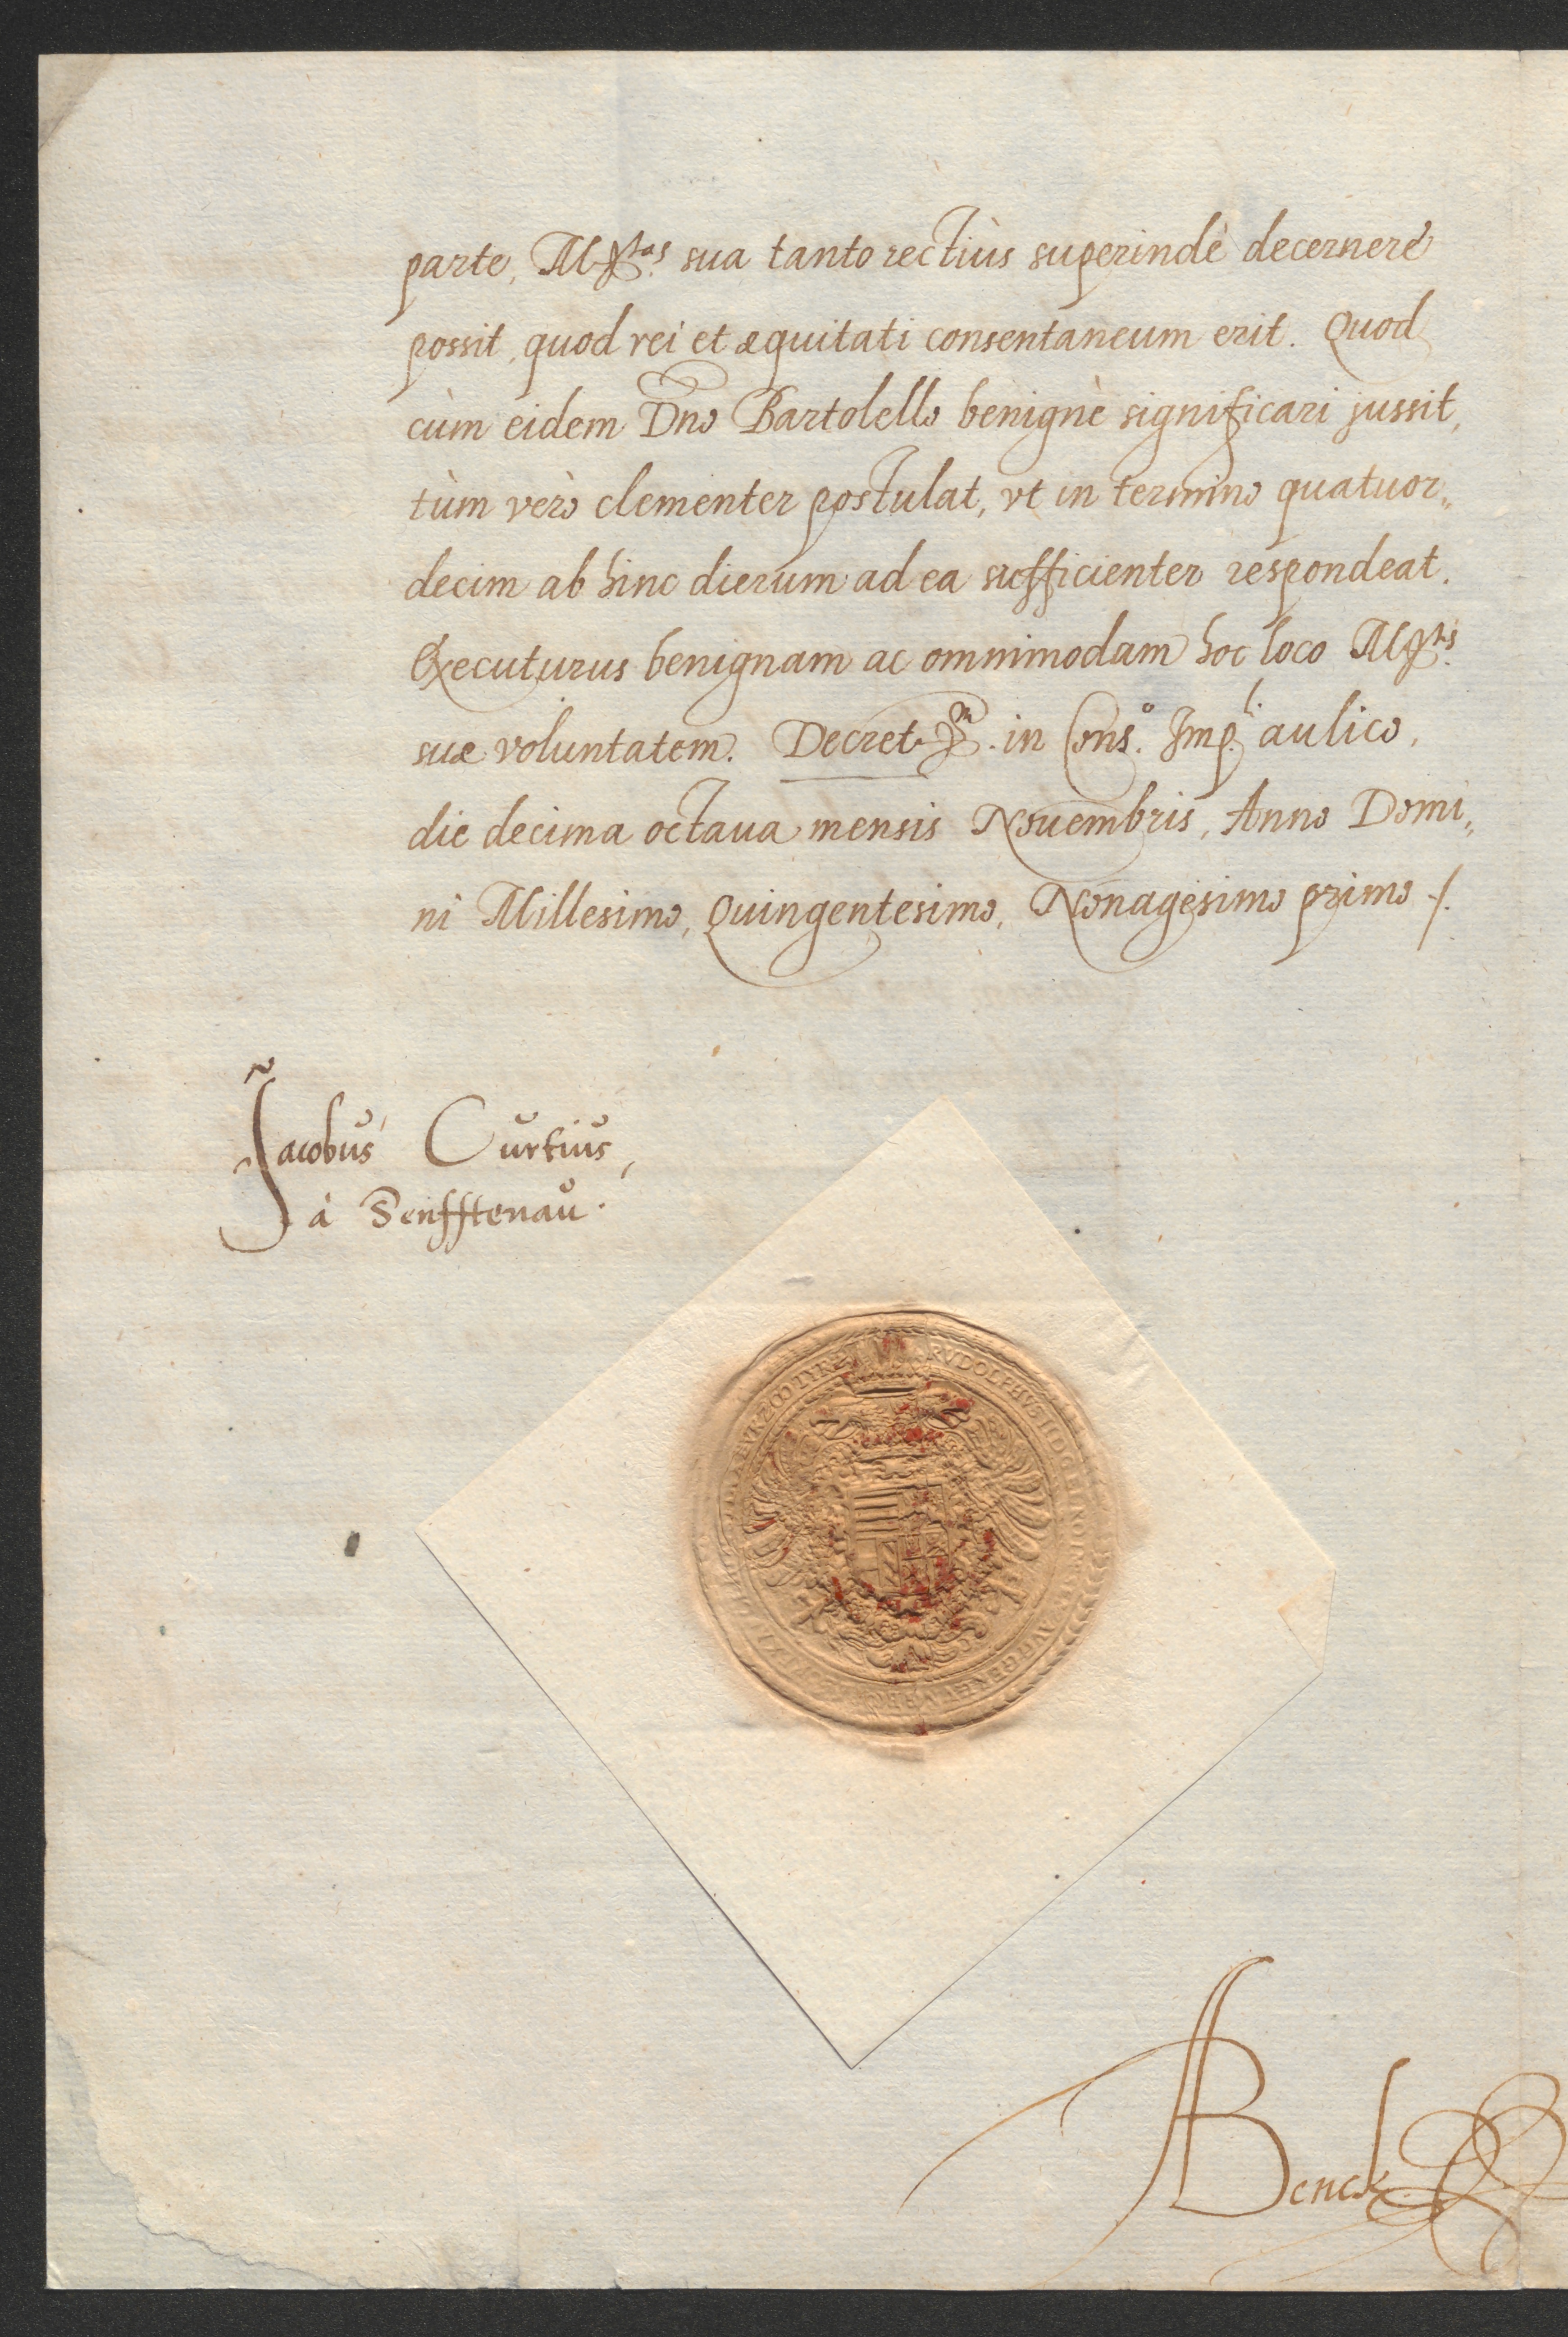 parte, M.tas sua tanto rectiùs superindè decernere
possit, quod rei et æquitati consentaneum erit. Quod
cùm eidem Dno Bartolello benignè significari jussit,
tùm verò clementer postulat, vt in termino quatuor„
decim ab hinc dierum ad ea sufficienter respondeat.
Executurus benignam ac omnimodam hoc loco M.tis
suæ voluntatem. Decret.m in Cons.o Imp.li aulico,
die decima octaua mensis Nouembris, Anno Domi„
ni Millesimo, Quingentesimo, Nonagesimo primo ./.
Jacobus Curtius,
à Senfftenau.
RVDOLPHVS II D G
TYR
ABenck